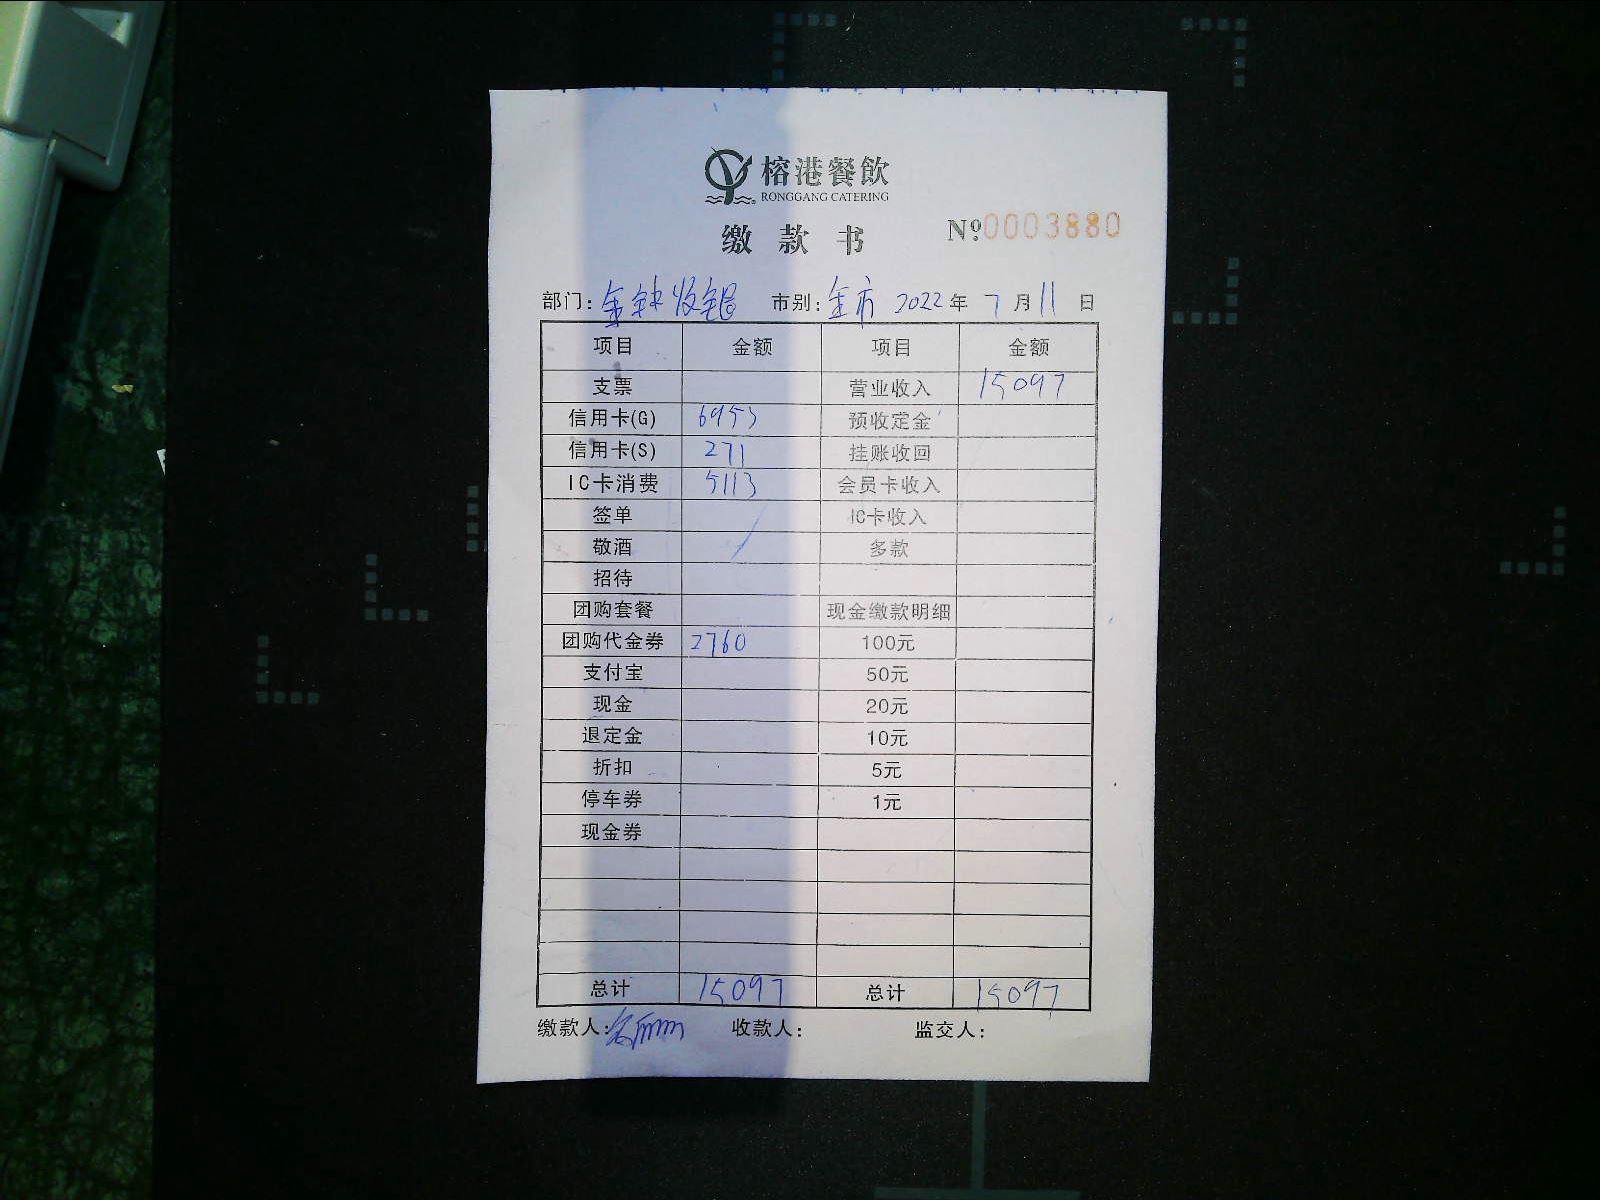 榕港餐飲
RONGGANG CATERING
缴款书 Nº:0003880
部门:金钻收银 市别:全市 2022年7月11日
项目 金额 项目 金额
支票 营业收入 15097
信用卡(G) 6953 预收定金
信用卡(S) 271 挂账收回
IC卡消费 5113 会员卡收入
签单 IC卡收入
敬酒 多款
招待
团购套餐 现金缴款明细
团购代金券 2760 100元
支付宝 50元
现金 20元
退定金 10元
折扣 5元
停车券 1元
现金券
总计 15097 总计 15097
缴款人: 收款人: 监交人: